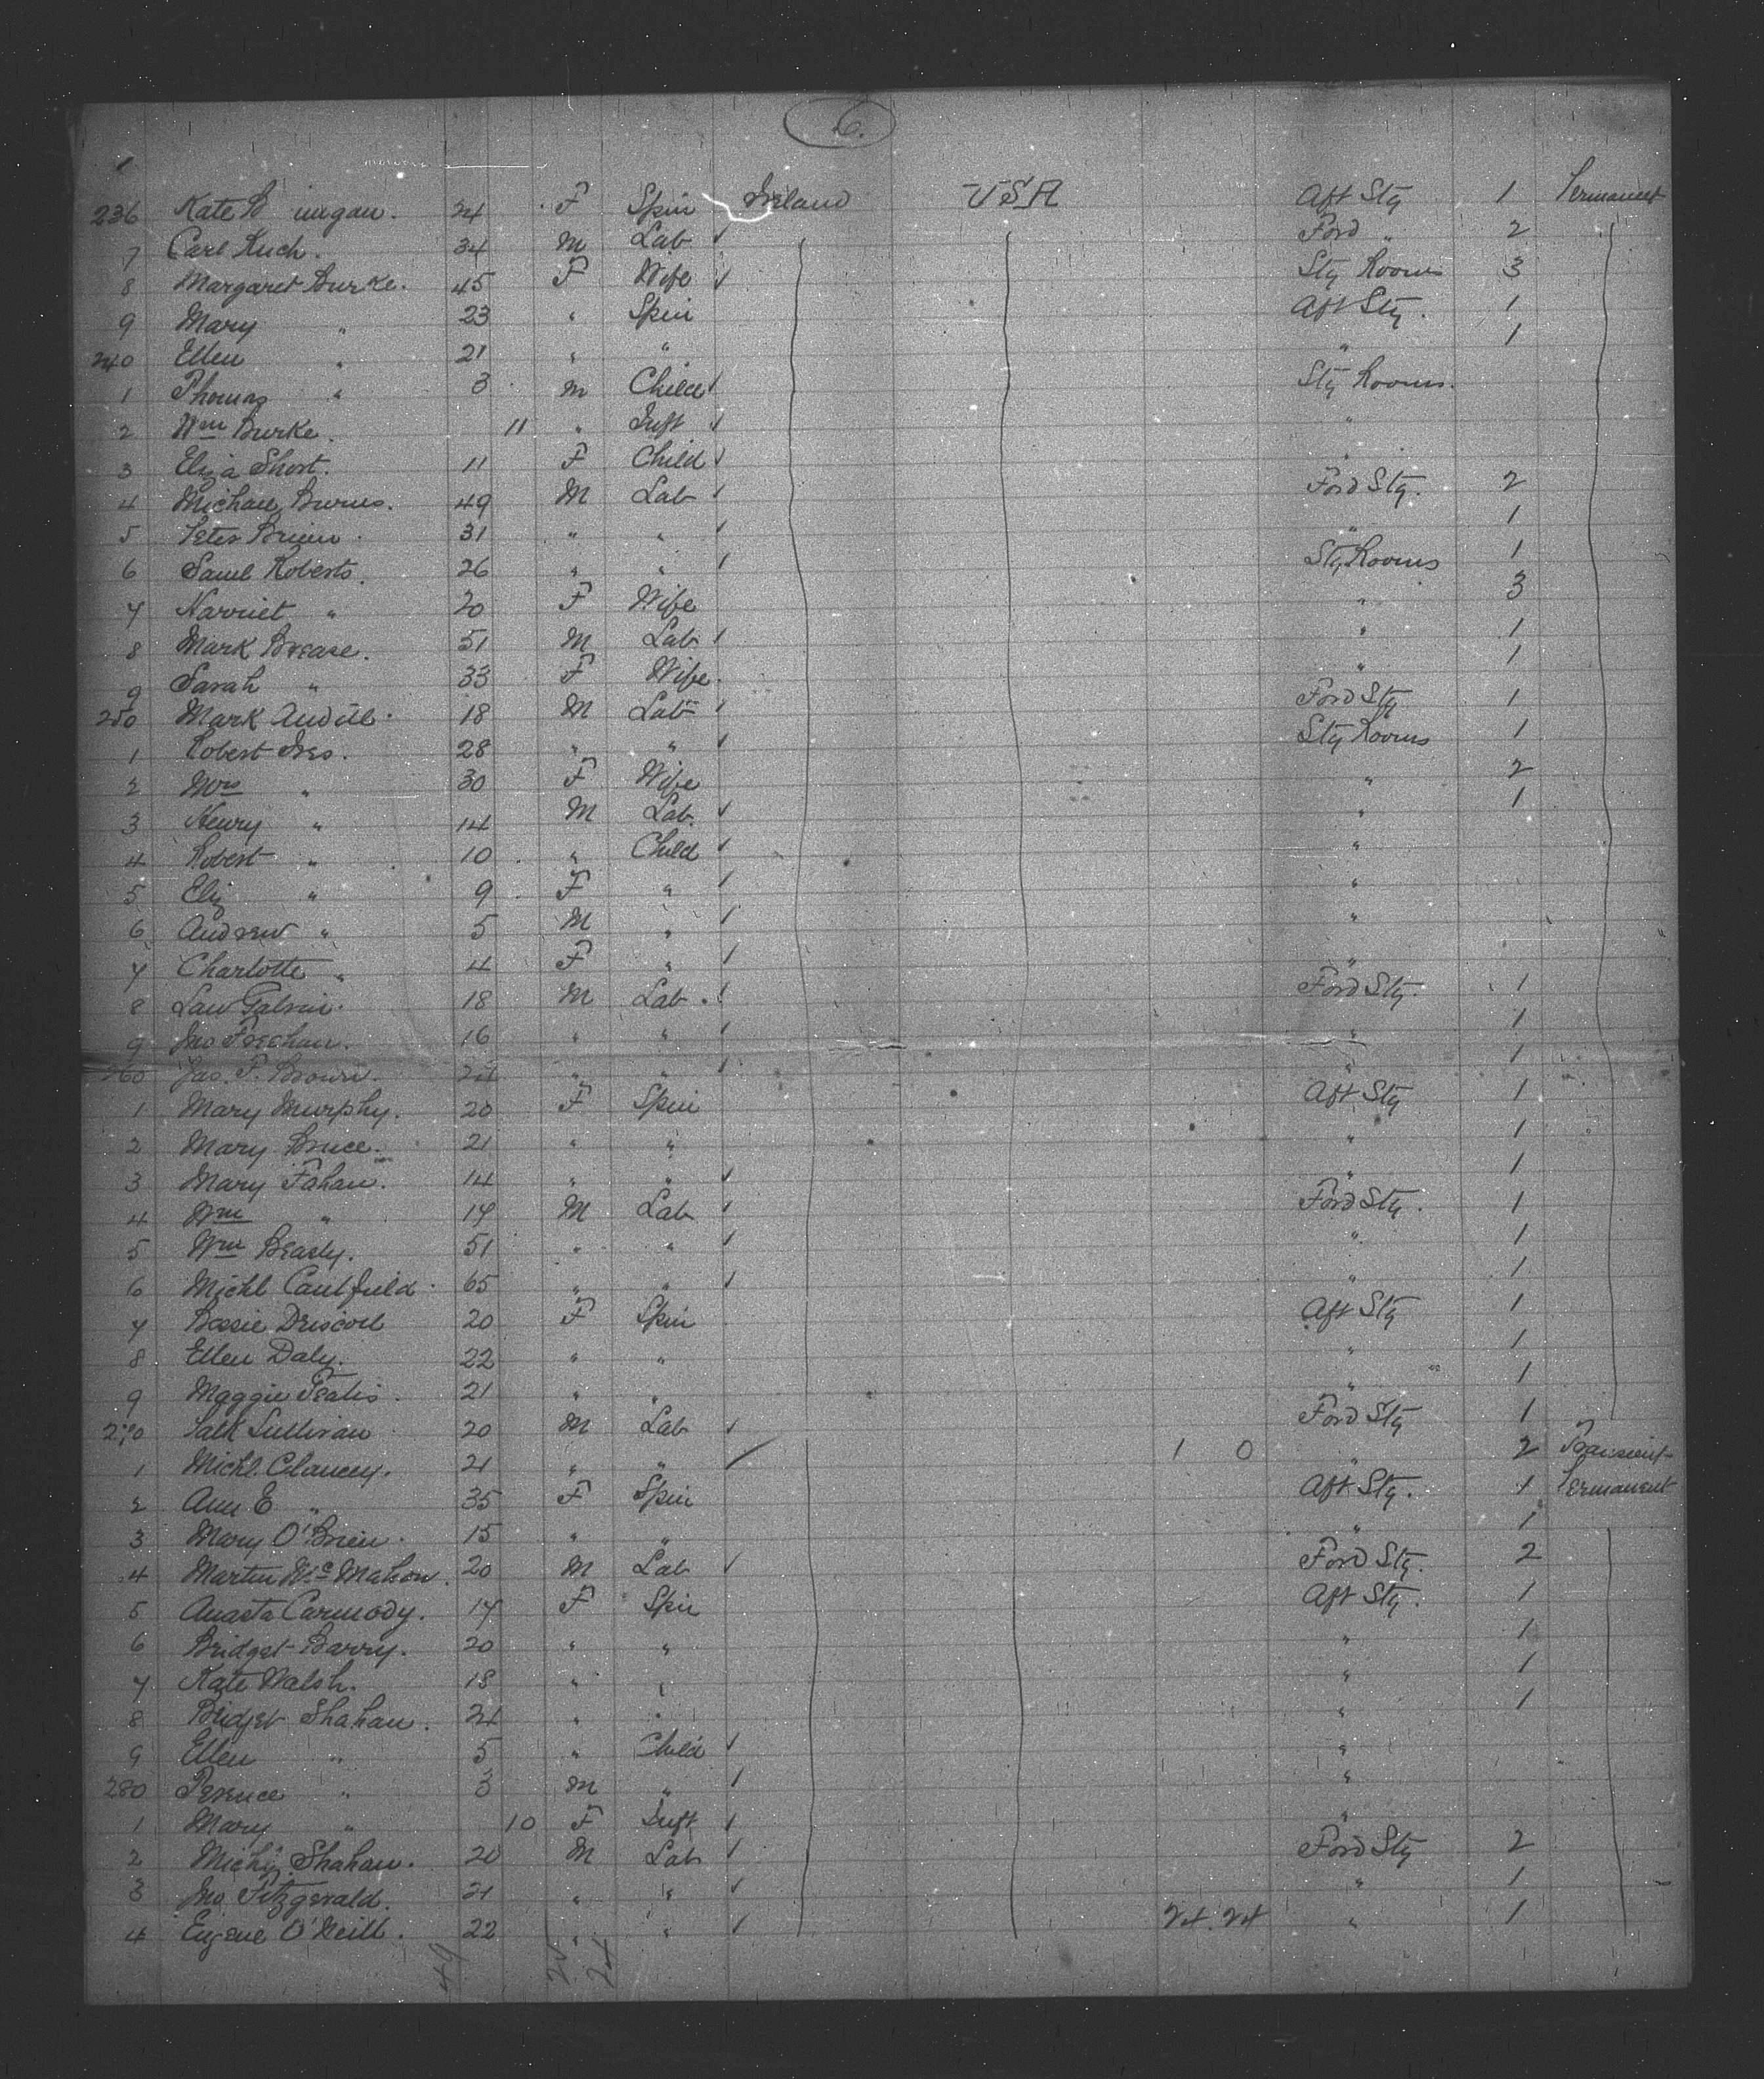 6.
236 Kate B nnigan. 24 F Spin Ireland USA Aft Stg 1 Permanent
7 Carl Ruch. 34 M Lab Ford " 2
8 Margaret Burke. 45 F Wife Stg Rooms 3
9 Mary " 23 " Spin Aft Stg. 1
240 Ellen " 21 " " " 1
1 Thomas " 3 M Child Stg Rooms.
2 Wm Burke. 11 " Inft "
3 Eliza Short. 11 F Child "
4 Michael Burns. 49 M Lab Ford Stg. 2
5 Peter Brien. 31 " " " 1
6 Saml Roberts. 26 " " Stg Rooms 1
7 Harriet " 20 F Wife " 3
8 Mark Brease. 51 M Lab " 1
9 Sarah " 33 F Wife. " 1
250 Mark 18 M Lab Ford Stg 1
1 Robert Ires. 28 " " Stg Rooms 1
2 Mrs " 30 F Wife " 2
3 Henry " 14 M Lab. " 1
4 Robert " 10 " Child "
5 Eliz " 9 F " "
6 Andrew " 5 M " "
7 Charlotte " 4 F " "
8 Law Galvin. 18 M Lab. Ford Stg. 1
9 Jno Feeehan. 16 " " " 1
260 Jas. P. Brown. " " " 1
1 Mary Murphy. 20 F Spin Aft Stg 1
2 Mary Bruce. 21 " " " 1
3 Mary Fahan. 14 " " " 1
4 Wm " 17 M Lab Ford Stg. 1
5 Wm Beasly. 51 " " " 1
6 Michl Caulfield. 65 " " " 1
7 Bessie Driscoll 20 F Spin Aft Stg 1
8 Ellen Daly. 22 " " " 1
9 Maggie 21 " " " 1
270 Patk Sullivan 20 M Lab Ford Stg 1
1 Michl. Clancey. 21 " " 1 0 " 2 Transient
2 Ann E " 35 F Spin Aft Stg. 1 Permanent
3 Mary O'Brien. 15 " " " 1
4 Martin McMahon. 20 M Lab Ford Stg. 2
5 Anasta Carmody. 17 F Spin Aft Stg. 1
6 Bridget Barry. 20 " " " 1
7 Kate Walsh. 18 " " " 1
8 Bridget Shahan. 21 " " " 1
9 Ellen " 5 " Child "
280 Terence " 3 M " "
1 Mary " 10 F Inft "
2 Michl Shahan. 20 M Lab Ford Stg 2
3 Jno Fitzgerald. 21 " " " 1
4 Eugene O'Neill. 22 " " 24. 24 " 1
49 24